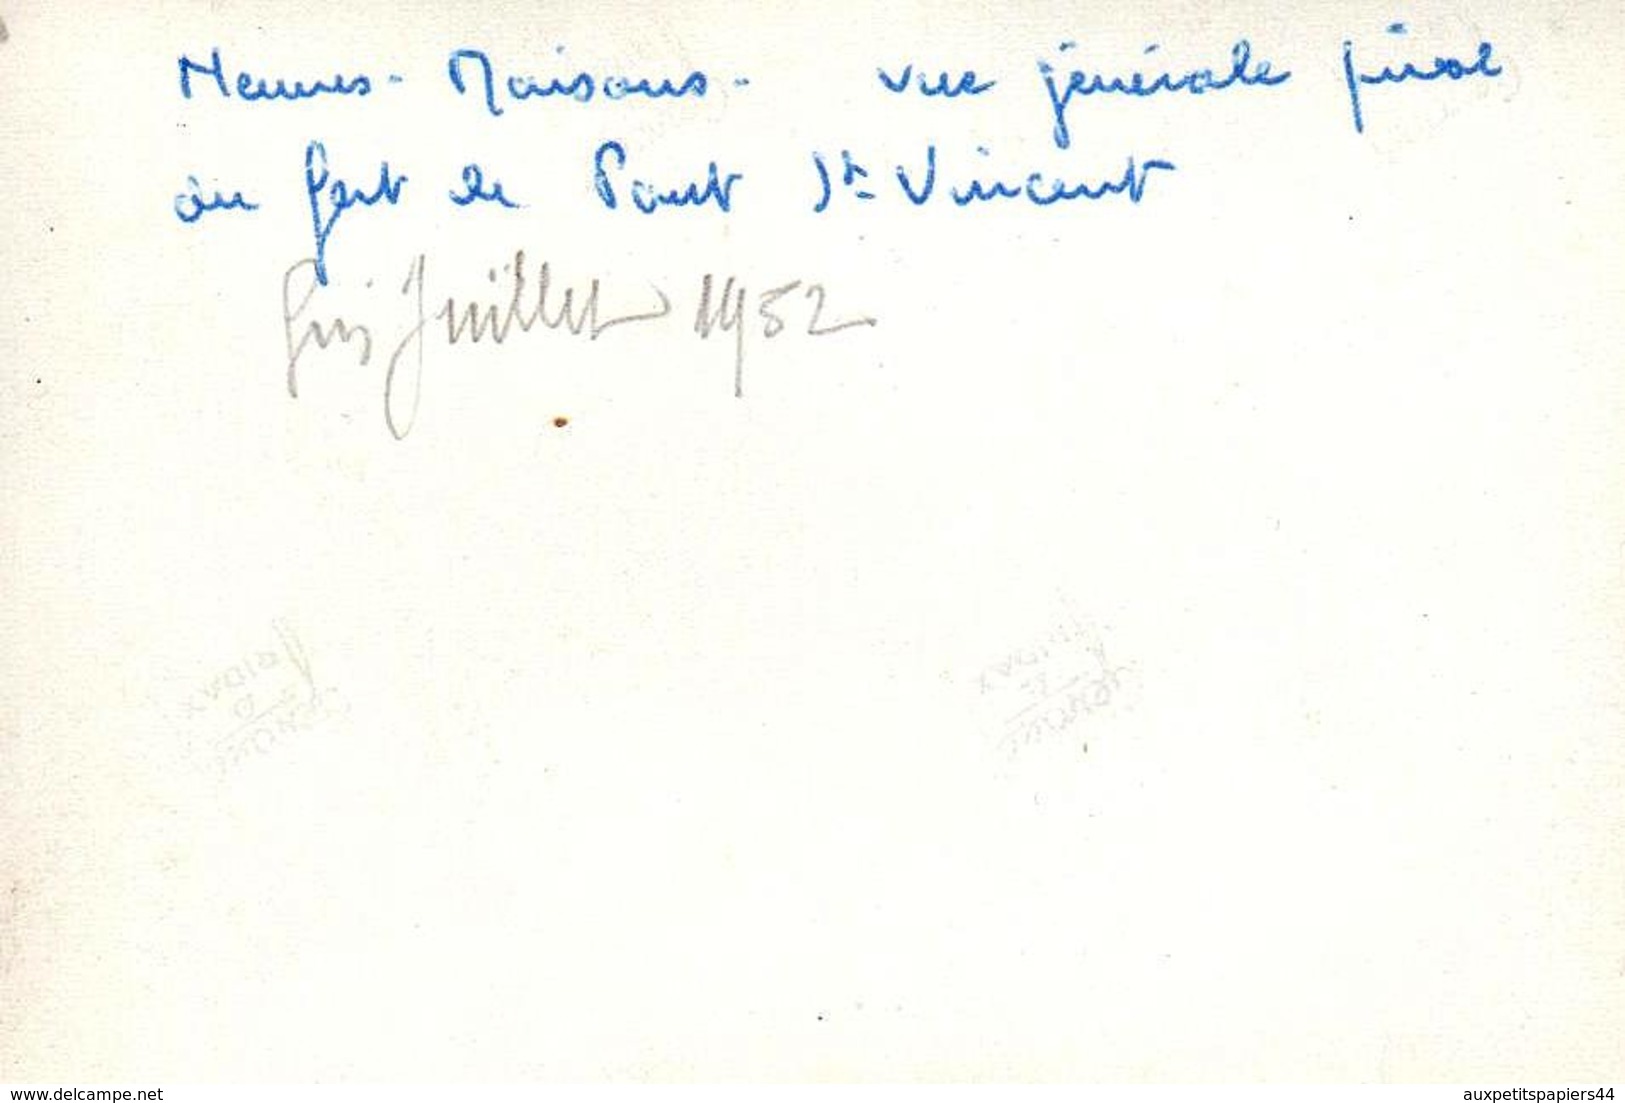 Neuves-Maisons - vue générale prise
du fort de Pont St Vincent
Juillet 1952
delcampe.net
auxpetitspapiers44